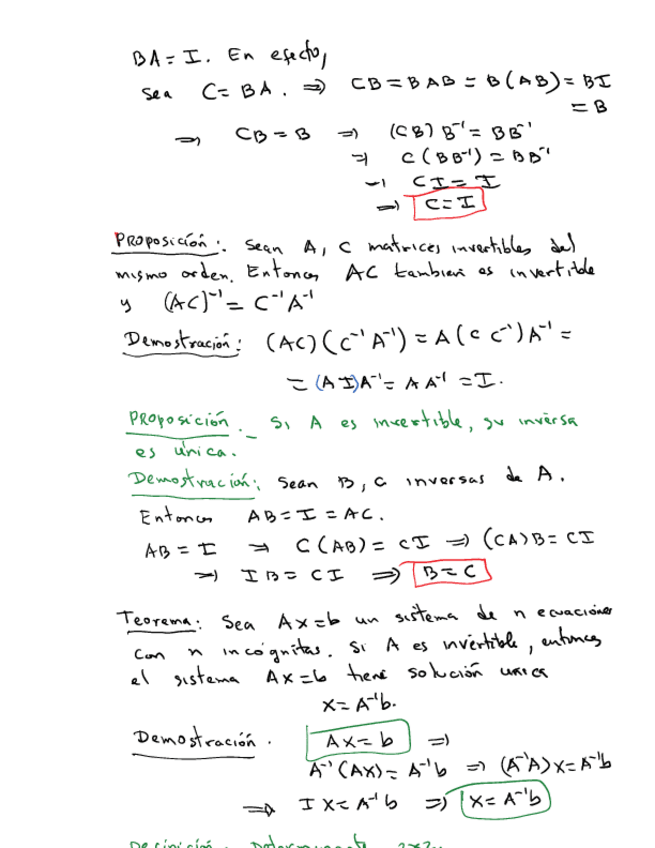 BA = I. En efecto,
sea C = BA. ⇒ CB = BAB = B(AB) = BI
= B
⇒ CB = B ⇒ (CB)B⁻¹ = BB⁻¹
⇒ C(BB⁻¹) = BB⁻¹
⇒ CI = I
⇒ C = I
Proposición: Sean A, C matrices invertibles del
mismo orden. Entonces AC también es invertible
y (AC)⁻¹ = C⁻¹A⁻¹
Demostración: (AC)(C⁻¹A⁻¹) = A(CC⁻¹)A⁻¹ =
= (AI)A⁻¹ = AA⁻¹ = I.
Proposición._ Si A es invertible, su inversa
es única.
Demostración: Sean B, C inversas de A.
Entonces AB = I = AC.
AB = I ⇒ C(AB) = CI ⇒ (CA)B = CI
⇒ IB = CI ⇒ B = C
Teorema: Sea Ax = b un sistema de n ecuaciones
con n incógnitas. Si A es invertible, entonces
el sistema Ax = b tiene solución unica
x = A⁻¹b.
Demostración. Ax = b ⇒
A⁻¹(Ax) = A⁻¹b ⇒ (A⁻¹A)x = A⁻¹b
⇒ Ix = A⁻¹b ⇒ x = A⁻¹b